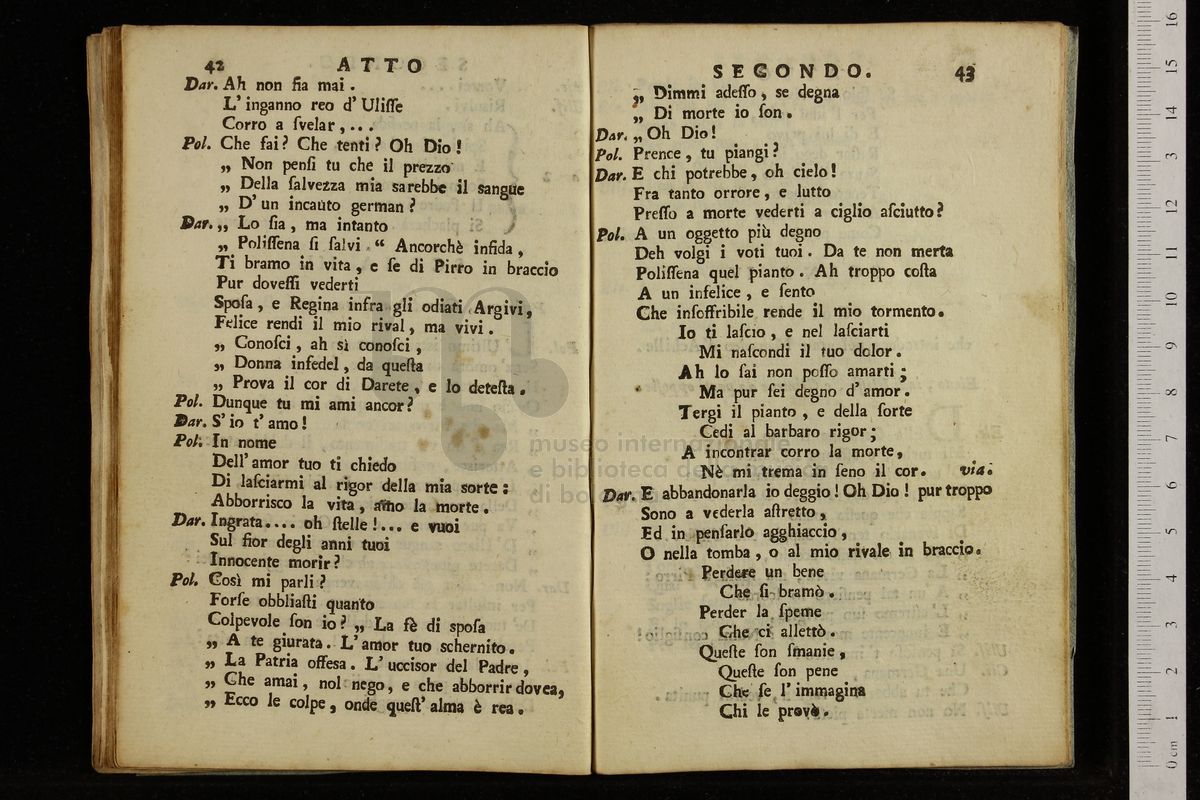 42 ATTO
Dar. Ah non fia mai.
L'inganno reo d'Ulisse
Corro a svelar,...
Pol. Che fai? Che tenti? Oh Dio!
„ Non pensi tu che il prezzo
„ Della salvezza mia sarebbe il sangue
„ D'un incauto german?
Dar. „ Lo sia, ma intanto
„ Polissena si salvi. “ Ancorchè infida,
Ti bramo in vita, e se di Pirro in braccio
Pur dovessi vederti
Sposa, e Regina infra gli odiati Argivi,
Felice rendi il mio rival, ma vivi.
„ Conosci, ah sì conosci,
„ Donna infedel, da questa
„ Prova il cor di Darete, e lo detesta.
Pol. Dunque tu mi ami ancor?
Dar. S'io t'amo!
Pol. In nome
Dell'amor tuo ti chiedo
Di lasciarmi al rigor della mia sorte:
Abborrisco la vita, amo la morte.
Dar. Ingrata.... oh stelle!... e vuoi
Sul fior degli anni tuoi
Innocente morir?
Pol. Così mi parli?
Forse obbliasti quanto
Colpevole son io? „ La fè di sposa
„ A te giurata. L'amor tuo schernito.
„ La Patria offesa. L'uccisor del Padre,
„ Che amai, nol nego, e che abborrir dovea,
„ Ecco le colpe, onde quest'alma è rea.
SECONDO. 43
„ Dimmi adesso, se degna
„ Di morte io son.
Dar. „ Oh Dio!
Pol. Prence, tu piangi?
Dar. E chi potrebbe, oh cielo!
Fra tanto orrore, e lutto
Presso a morte vederti a ciglio asciutto?
Pol. A un oggetto più degno
Deh volgi i voti tuoi. Da te non merta
Polissena quel pianto. Ah troppo costa
A un infelice, e sento
Che insoffribile rende il mio tormento.
Io ti lascio, e nel lasciarti
Mi nascondi il tuo dolor.
Ah lo sai non posso amarti;
Ma pur sei degno d'amor.
Tergi il pianto, e della sorte
Cedi al barbaro rigor;
A incontrar corro la morte,
Nè mi trema in seno il cor. via.
Dar. E abbandonarla io deggio! Oh Dio! pur troppo
Sono a vederla astretto,
Ed in pensarlo agghiaccio,
O nella tomba, o al mio rivale in braccio.
Perdere un bene
Che si bramò.
Perder la speme
Che ci allettò.
Queste son smanie,
Queste son pene
Che se l'immagina
Chi le provò.
museo internazionale
e biblioteca della
di bo
0 cm 1 2 3 4 5 6 7 8 9 10 11 12 13 14 15 16